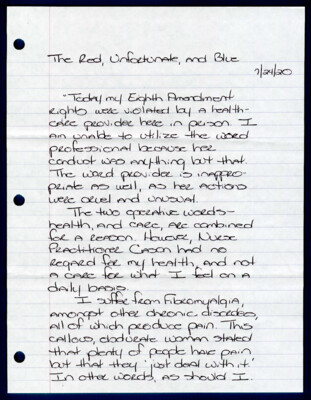 The Red, Unfortunate, and Blue
7/24/20
"Today my Eighth Amendment
rights were violated by a health-
care provider here in person. I
am unable to utilize the word
professional because her
conduct was anything but that.
The word provider is inappro-
priate as well, as her actions
were cruel and unusual.
The two operative words-
health, and care, are combined
for a reason. However, Nurse
Practitioner Cason had no
regard for my health, and not
a care for what I feel on a
daily basis.
I suffer from Fibromyalgia,
amongst other chronic disorders,
all of which produce pain. This
callous, obdurate woman stated
that plenty of people have pain
but that they "just deal with it."
In other words, as should I.